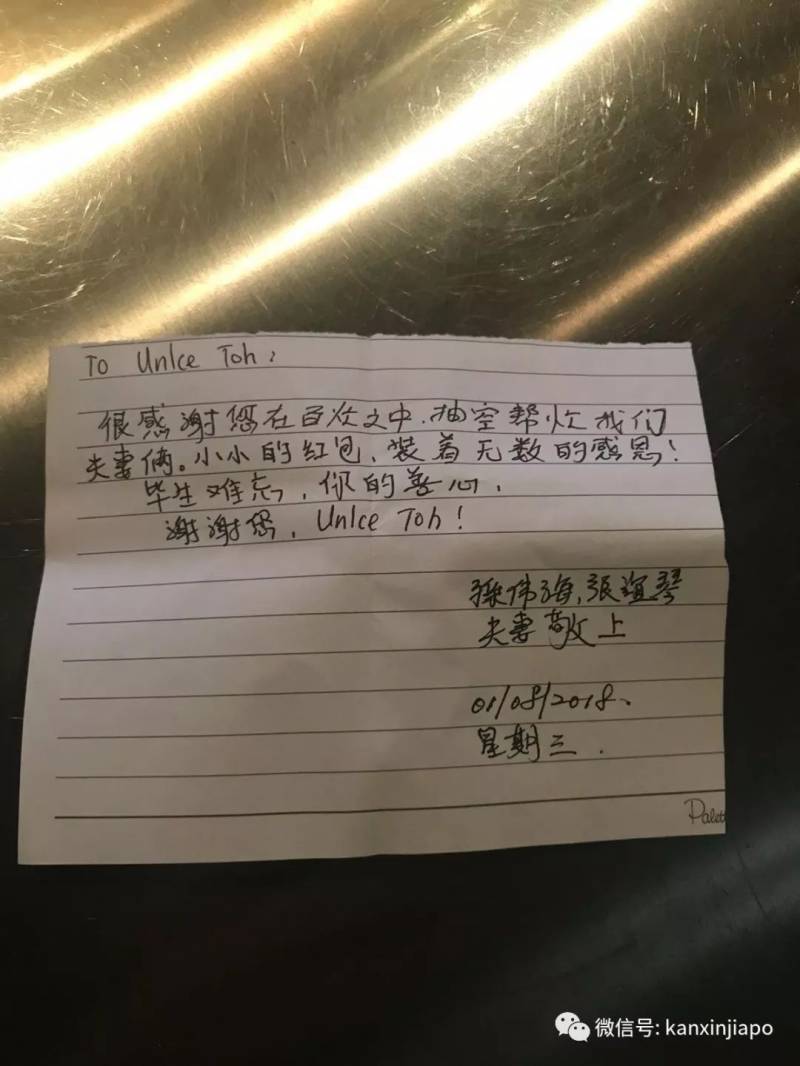 To Unlce Toh:
很感谢您在百忙之中,抽空帮忙我们
夫妻俩。小小的红包,装着无数的感恩!
毕生难忘,你的善心,
谢谢您,Unlce Toh!
孫伟海,张琴
夫妻敬上
01/08/2018、
星期三.
Palet
微信号: kanxinjiapo